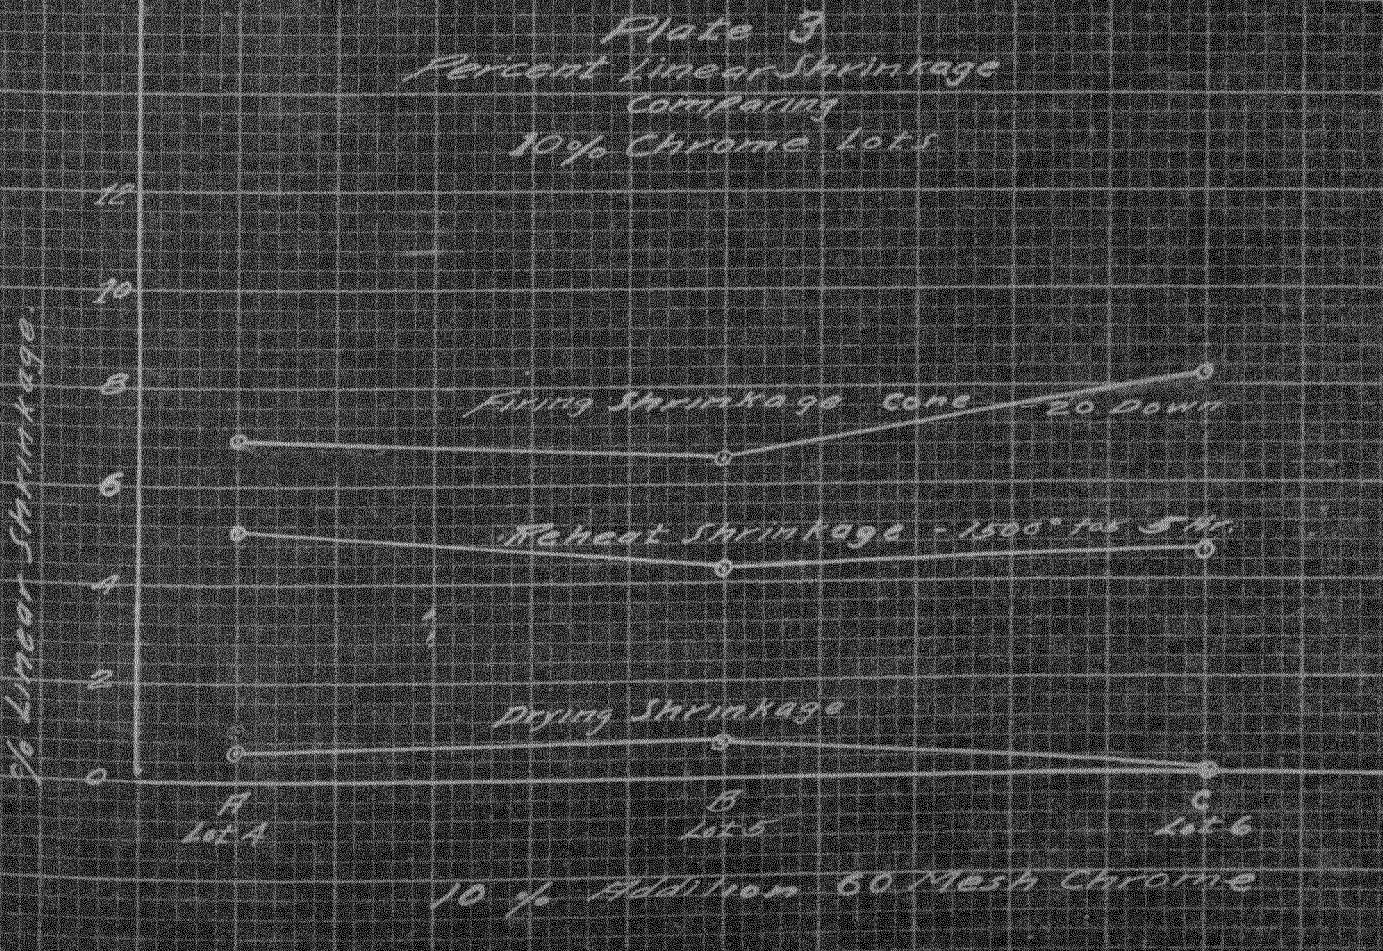 Plate 3
Percent Linear Shrinkage
Comparing
10% Chrome Lots
12
10
8
6
4
2
0
% Linear Shrinkage.
Firing Shrinkage Cone 20 Down
Reheat Shrinkage - 1500° for 5 Hr.
Drying Shrinkage
A
Lot 4
B
Lot 5
C
Lot 6
10 % Addition 60 Mesh Chrome